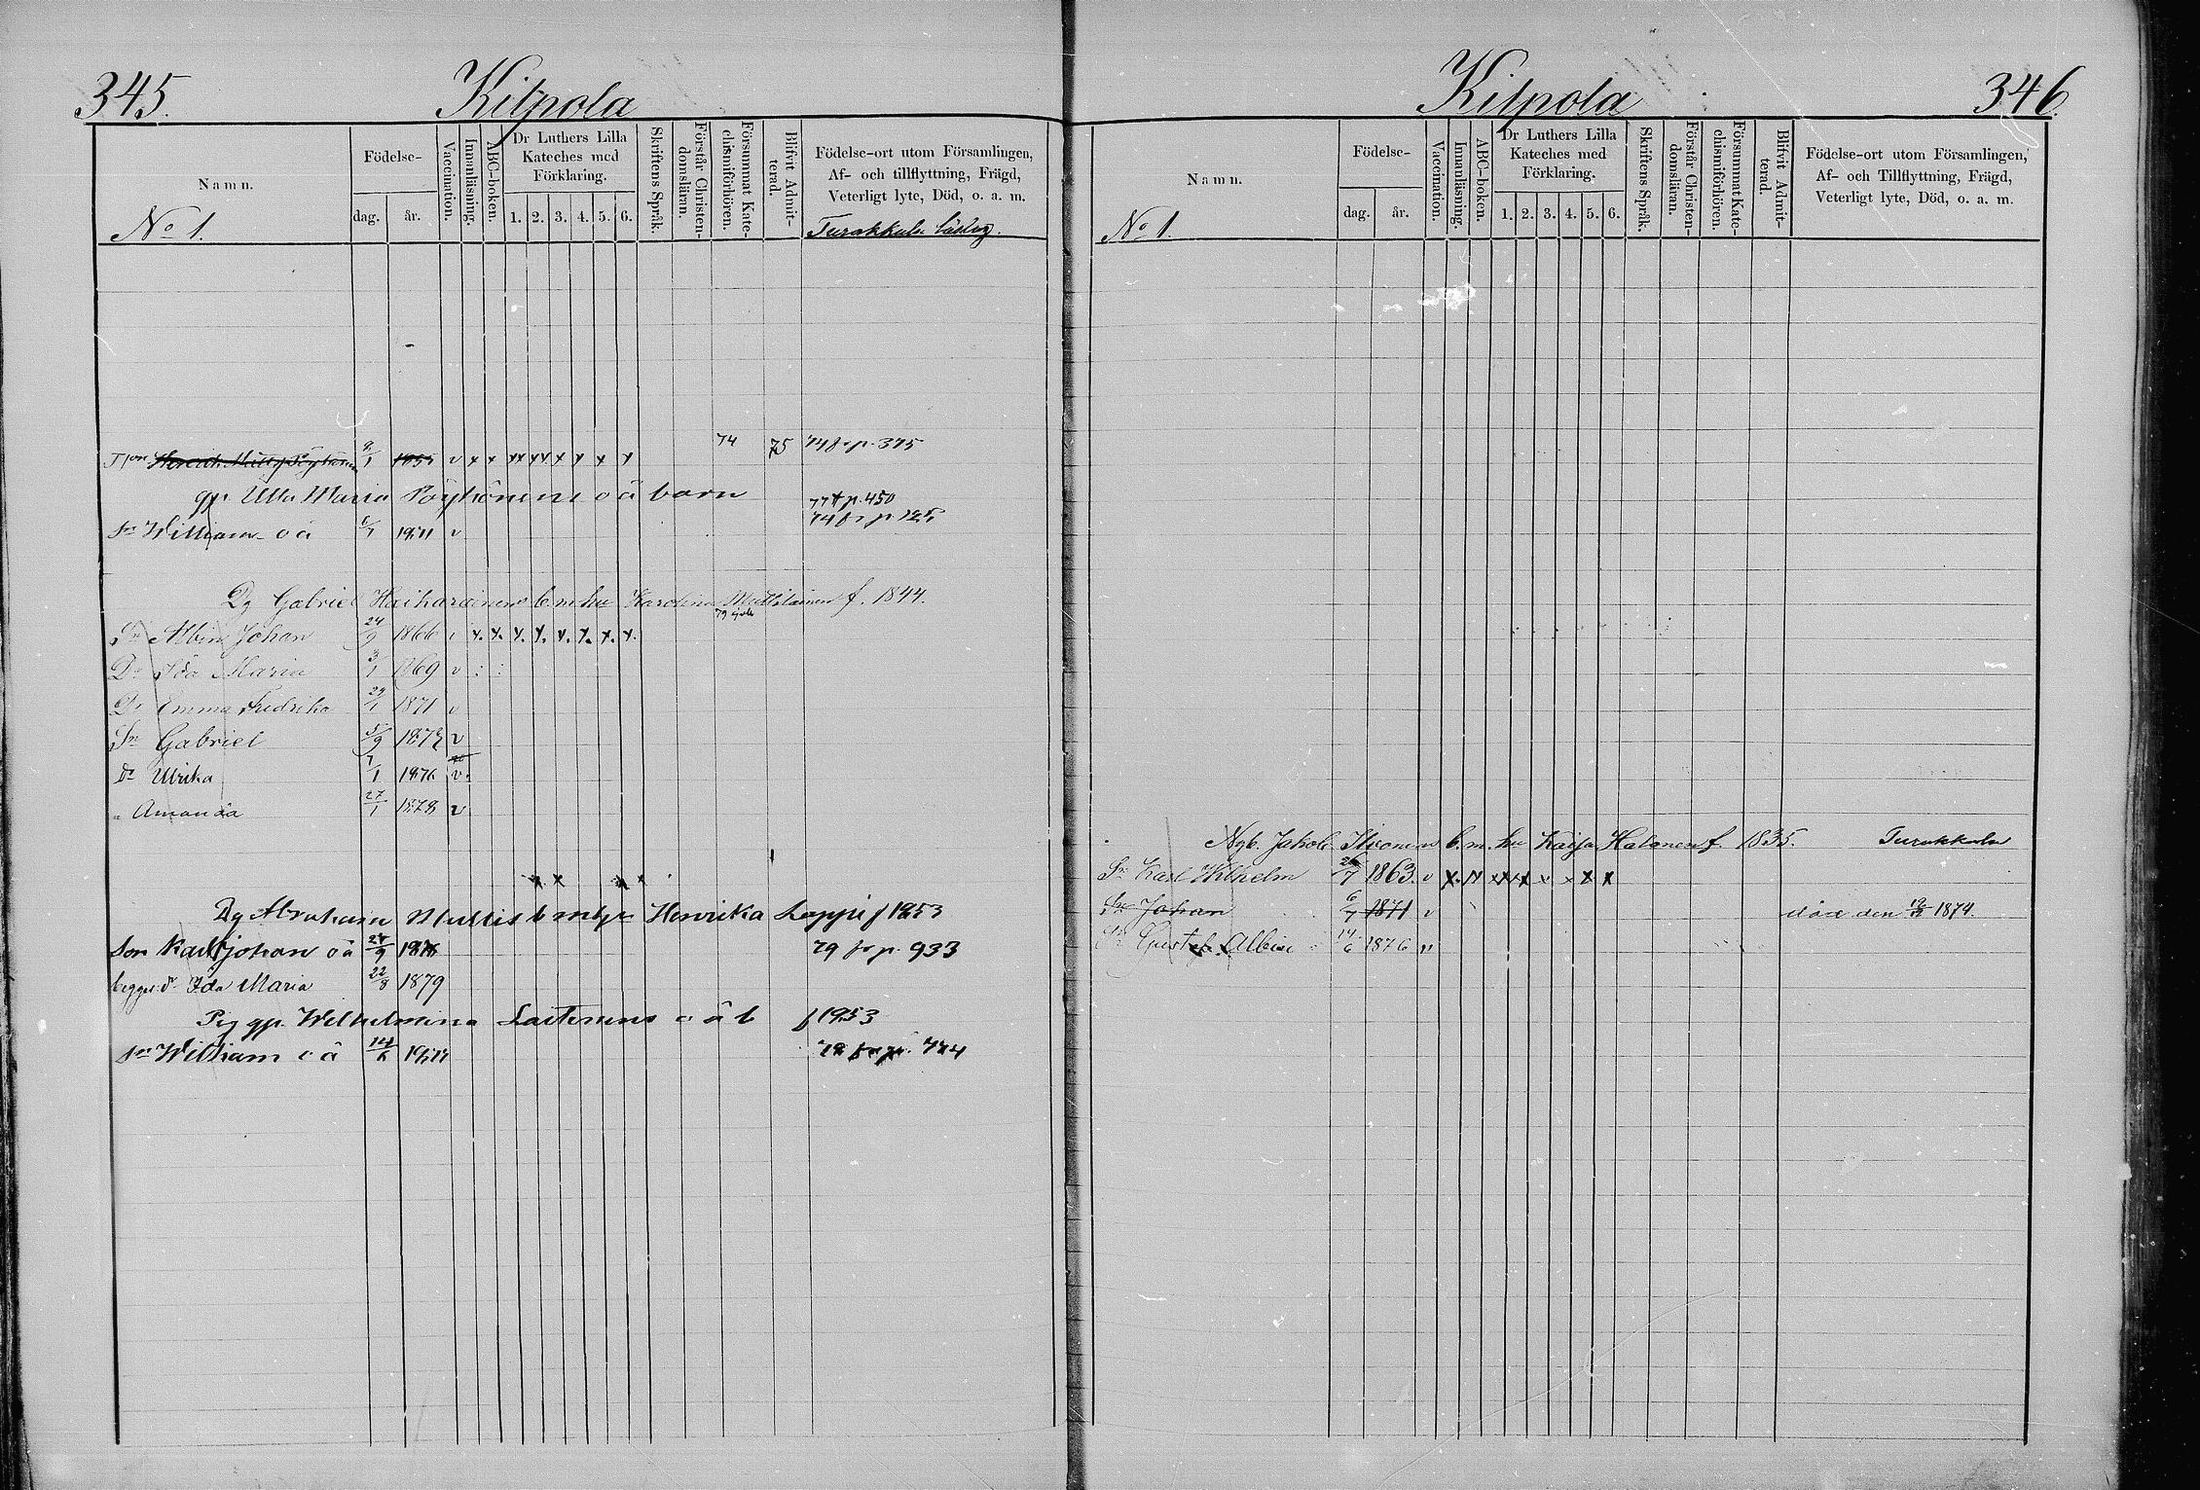 345.
Kilpola
Namn.
Födelse-
dag.
år.
Vaccination.
Innanläsning.
ABC-boken.
Dr Luthers Lilla
Kateches med
Förklaring.
1. 2. 3. 4. 5. 6.
Skriftens Språk.
Förstår Christen-
domsläran.
Försummat Kate-
chismiförhören.
Blifvit Admit-
terad.
Födelse-ort utom Församlingen,
Af- och tillflyttning, Frägd,
Veterligt lyte, Död, o. a. m.
No 1.
Turakkala
74 75 p. 375
9/1 v x x xx xx x x x x
gp Ulla Maria Pöyhönens o ä barn
77 p. 450
Sn William o ä 1871 v 74 fr p.
Dg Gabriel Haikarainens b. m. hu Karolina f. 1844.
Sn Albin Johan 24/9 1866 v x. x. x. x. x. x. x. x.
Dr Ida Maria 3/1 1869 v
Dr Emma Fredrika 29/1 1871 v
Sn Gabriel 5/9 1873 v
Dr Ulrika 7/1 1876 v
" Amanda 27/1 1878 v
x. x x x
Dg Abraham b m hu Henrika Lappi f 1853
Son Karl Johan o ä 9 79 fr p. 933
dr Ida Maria 22/8 1879
Pig gp. Wilhelmina o ä b f 1853
Sn William o ä 14/6 fr p.
346.
Kilpola
Namn.
Födelse-
dag.
år.
Vaccination.
Innanläsning.
ABC-boken.
Dr Luthers Lilla
Kateches med
Förklaring.
1. 2. 3. 4. 5. 6.
Skriftens Språk.
Förstår Christen-
domsläran.
Försummat Kate-
chismiförhören.
Blifvit Admit-
terad.
Födelse-ort utom Församlingen,
Af- och Tillflyttning, Frägd,
Veterligt lyte, Död, o. a. m.
No 1.
Ngb. Jakob Ikonens b. m. hu Kaisa Halanen f. 1835. Turakkala
Sn Karl Wilhelm 26/7 1863. v x. x xx xx x x x x
Sn Johan 6/7 1871 v död den 1874.
Sn Gustaf Albin 14/6 1876 v